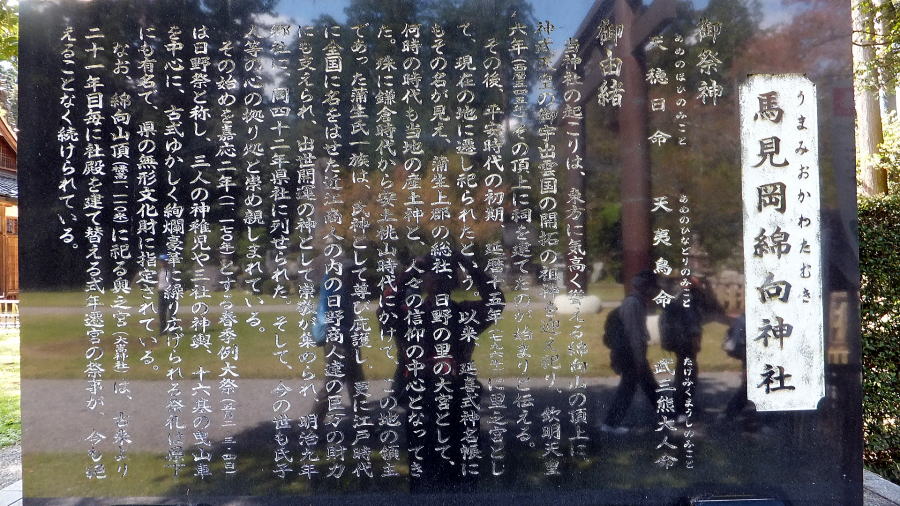 うまみおかわたむき
馬見岡綿向神社
御祭神
あめのほひのみこと
天穂日命
あめのひなどりのみこと
天夷鳥命
たけみくまうしのみこと
武三熊大人命
御由緒
当神社の起こりは、東方に気高く聳える綿向山の頂上に
神武天皇の御宇出雲国の開拓の祖神を迎え祀り、欽明天皇
六年(西暦五四五)その頂上に祠を建てたのが始まりと伝える。
その後、平安時代の初期、延暦十五年(七九六)に里之宮とし
て、現在の地に遷し祀られたという。以来、延喜式神名帳に
もその名が見え、蒲生上郡の総社、日野の里の大宮として、
何時の時代も当地の産土神と、人々の信仰の中心となってき
た。殊に鎌倉時代から安土桃山時代にかけて、この地の領主
であった蒲生氏一族は、氏神として尊び庇護し、更に江戸時代
に全国に名をはせた近江商人の内の日野商人達の巨万の財力
にも支えられ、出世開運の神として崇敬が集められ、明治九年
郷社に、同四十二年県社に列せられた。そして、今の世も氏子
人等の心の拠り処と崇め親しまれている。
その始めを嘉応二年(一一七〇)とする春季例大祭(五月二・三・四日)
は日野祭と称し、三人の神稚児や三社の神輿、十六基の曳山車
を中心に、古式ゆかしく絢爛豪華に繰り広げられる祭礼は県下
にも有名で、県の無形文化財に指定されている。
なお、綿向山頂(標高一一一〇米)に祀る奥之宮(大嵩神社)は、古来より
二十一年目毎に社殿を建て替える式年遷宮の祭事が、今も絶
えることなく続けられている。